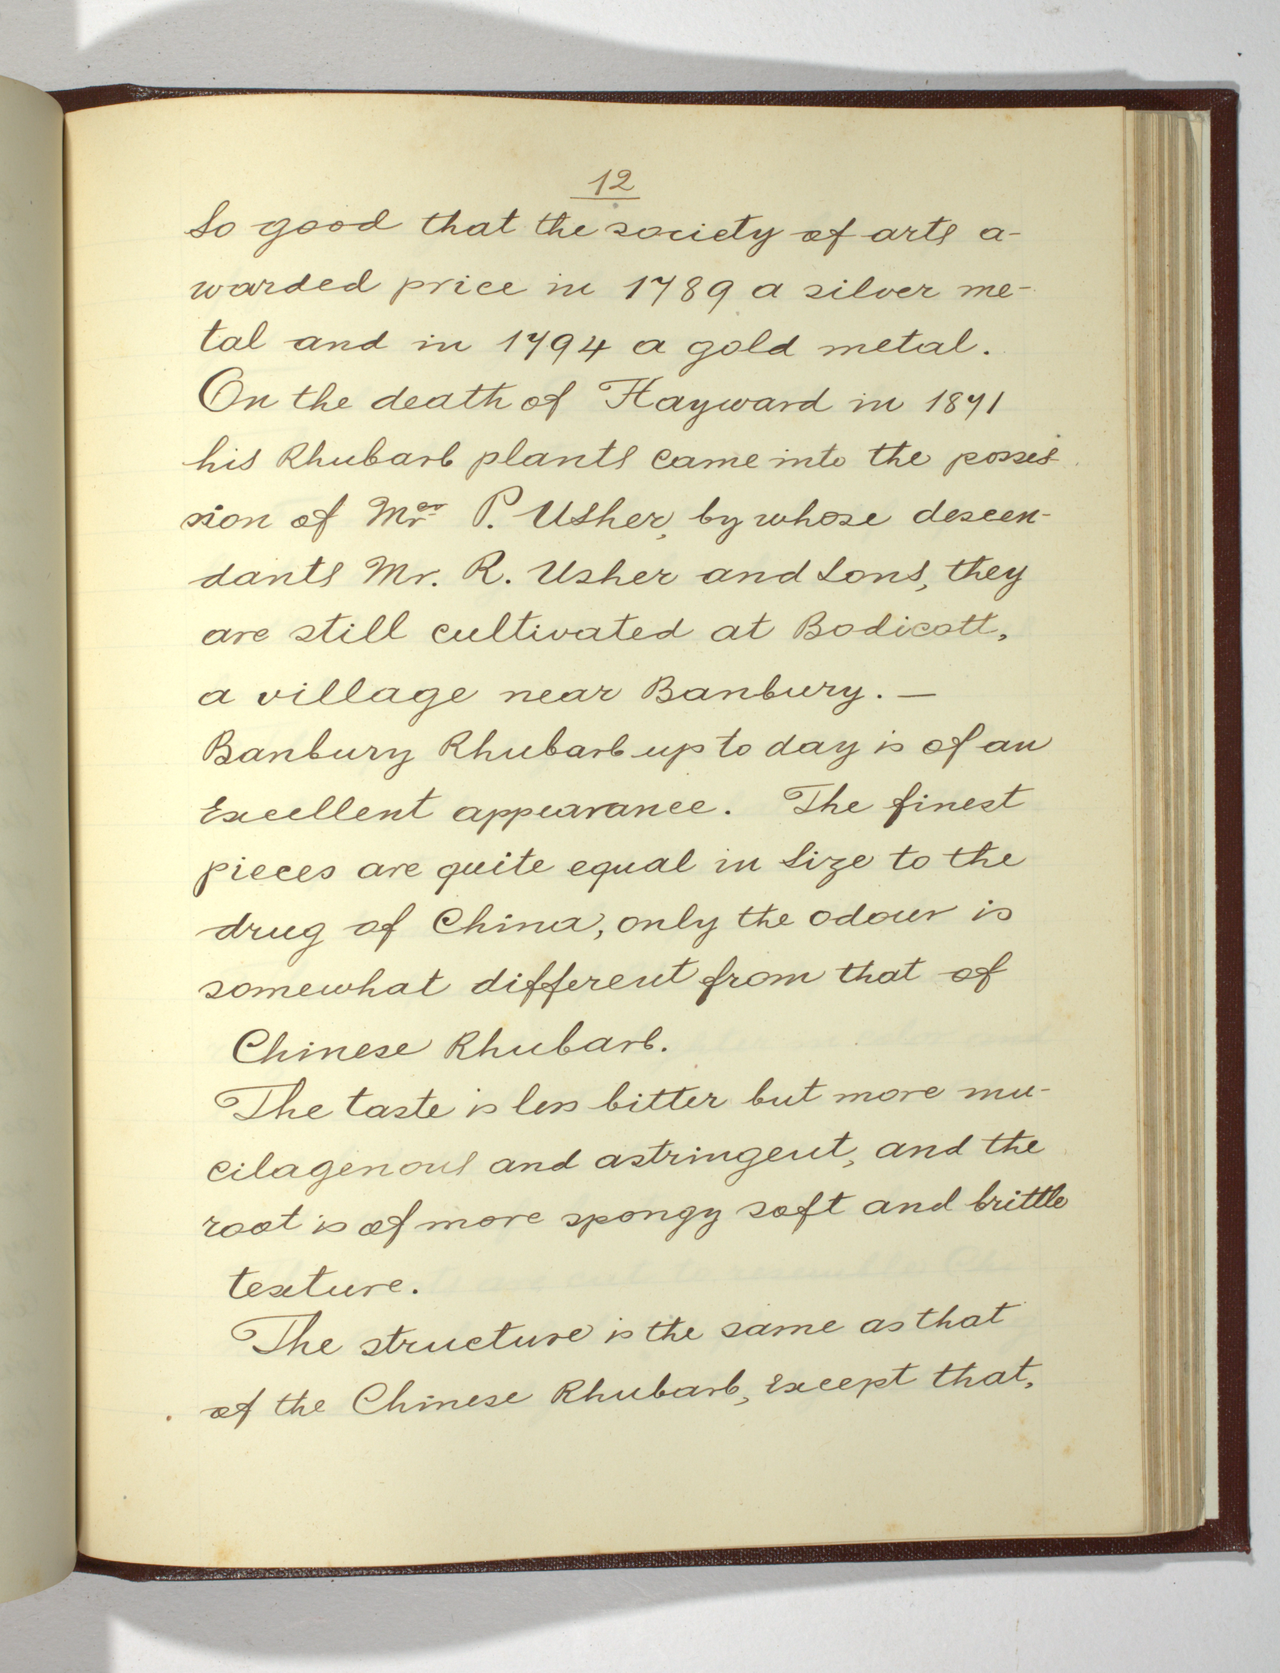 12
So good that the society of arts a-
warded price in 1789 a silver me-
tal and in 1794 a gold metal.
On the death of Hayward in 1871
his Rhubarb plants came into the posses-
sion of Mr P. Usher, by whose descen-
dants Mr. R. Usher and Sons, they
are still cultivated at Bodicott,
a village near Banbury. —
Banbury Rhubarb up to day is of an
Excellent appearance. The finest
pieces are quite equal in Size to the
drug of China, only the odour is
somewhat different from that of
Chinese Rhubarb.
The taste is less bitter but more mu-
cilagenous and astringent, and the
root is of more spongy soft and brittle
texture.
The structure is the same as that
of the Chinese Rhubarb, Except that,